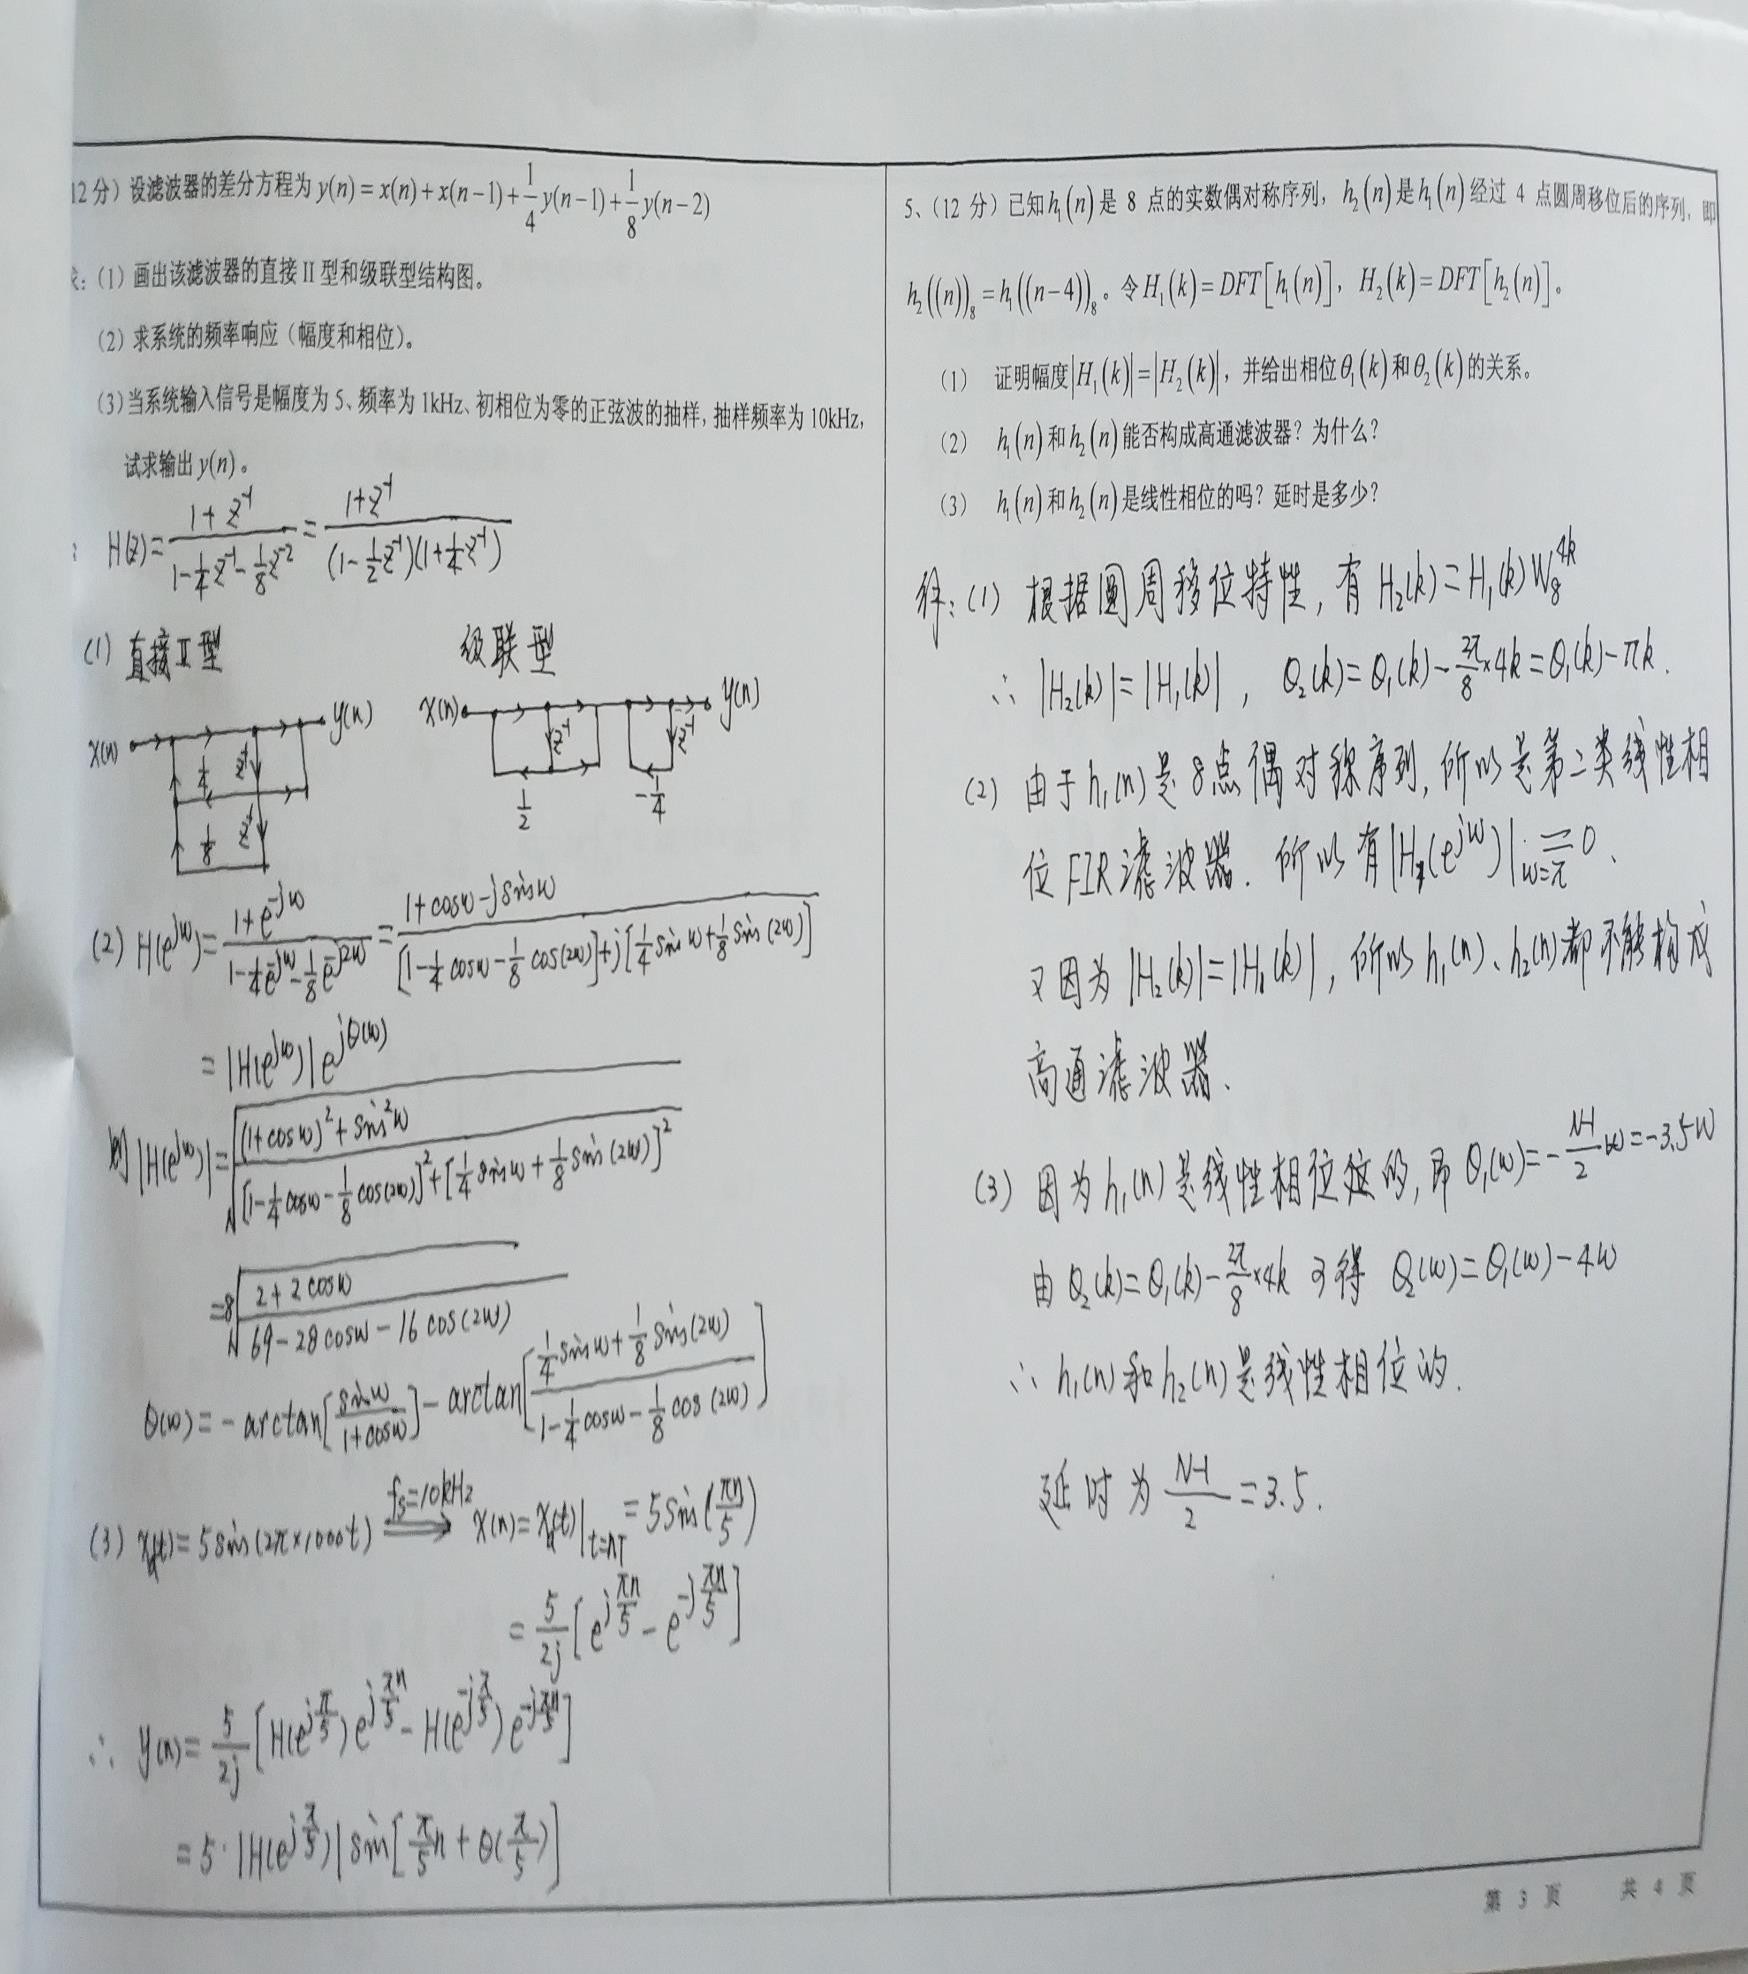 12分）设滤波器的差分方程为 y(n) = x(n) + x(n−1) + 1/4 y(n−1) + 1/8 y(n−2)
：（1）画出该滤波器的直接 II 型和级联型结构图。
（2）求系统的频率响应（幅度和相位）。
（3）当系统输入信号是幅度为 5、频率为 1kHz、初相位为零的正弦波的抽样，抽样频率为 10kHz，
试求输出 y(n)。
H(z) = (1+z⁻¹)/(1−1/4 z⁻¹−1/8 z⁻²) = (1+z⁻¹)/((1−1/2 z⁻¹)(1+1/4 z⁻¹))
(1) 直接II型 级联型
x(n) y(n) 1/4 z⁻¹ 1/8 z⁻¹
x(n) y(n) z⁻¹ 1/2 z⁻¹ −1/4
(2) H(e^{jw}) = (1+e^{-jw})/(1−1/4 e^{-jw}−1/8 e^{-j2w}) = (1+cosw−jsinw)/([1−1/4 cosw−1/8 cos(2w)]+j[1/4 sinw+1/8 sin(2w)])
= |H(e^{jw})| e^{jθ(w)}
则 |H(e^{jw})| = √(((1+cosw)²+sin²w)/([1−1/4 cosw−1/8 cos(2w)]²+[1/4 sinw+1/8 sin(2w)]²))
= 8√((2+2cosw)/(69−28cosw−16cos(2w)))
θ(w) = −arctan[sinw/(1+cosw)] − arctan[(1/4 sinw+1/8 sin(2w))/(1−1/4 cosw−1/8 cos(2w))]
(3) x(t) = 5sin(2π×1000t) fs=10kHz ⟹ x(n) = x(t)|t=nT = 5sin(πn/5)
= 5/2j [e^{jπn/5} − e^{-jπn/5}]
∴ y(n) = 5/2j [H(e^{jπ/5}) e^{jπn/5} − H(e^{-jπ/5}) e^{-jπn/5}]
= 5·|H(e^{jπ/5})| sin[π/5 n + θ(π/5)]
5、（12 分）已知 h₁(n) 是 8 点的实数偶对称序列，h₂(n) 是 h₁(n) 经过 4 点圆周移位后的序列，即
h₂((n))₈ = h₁((n−4))₈。令 H₁(k) = DFT[h₁(n)]，H₂(k) = DFT[h₂(n)]。
（1） 证明幅度 |H₁(k)| = |H₂(k)|，并给出相位 θ₁(k) 和 θ₂(k) 的关系。
（2） h₁(n) 和 h₂(n) 能否构成高通滤波器？为什么？
（3） h₁(n) 和 h₂(n) 是线性相位的吗？延时是多少？
解：(1) 根据圆周移位特性，有 H₂(k) = H₁(k) W₈^{4k}
∴ |H₂(k)| = |H₁(k)|，θ₂(k) = θ₁(k) − 2π/8 × 4k = θ₁(k) − πk.
(2) 由于 h₁(n) 是 8点偶对称序列，所以是第二类线性相
位FIR滤波器. 所以有 |H₁(e^{jw})|w=π = 0、
又因为 |H₂(k)| = |H₁(k)|，所以 h₁(n)、h₂(n) 都不能构成
高通滤波器、
(3) 因为 h₁(n) 是线性相位的，即 θ₁(w) = −(N−1)/2 w = −3.5w
由 θ₂(k) = θ₁(k) − 2π/8 × 4k 可得 θ₂(w) = θ₁(w) − 4w
∴ h₁(n) 和 h₂(n) 是线性相位的.
延时为 (N−1)/2 = 3.5.
第 3 页 共 4 页